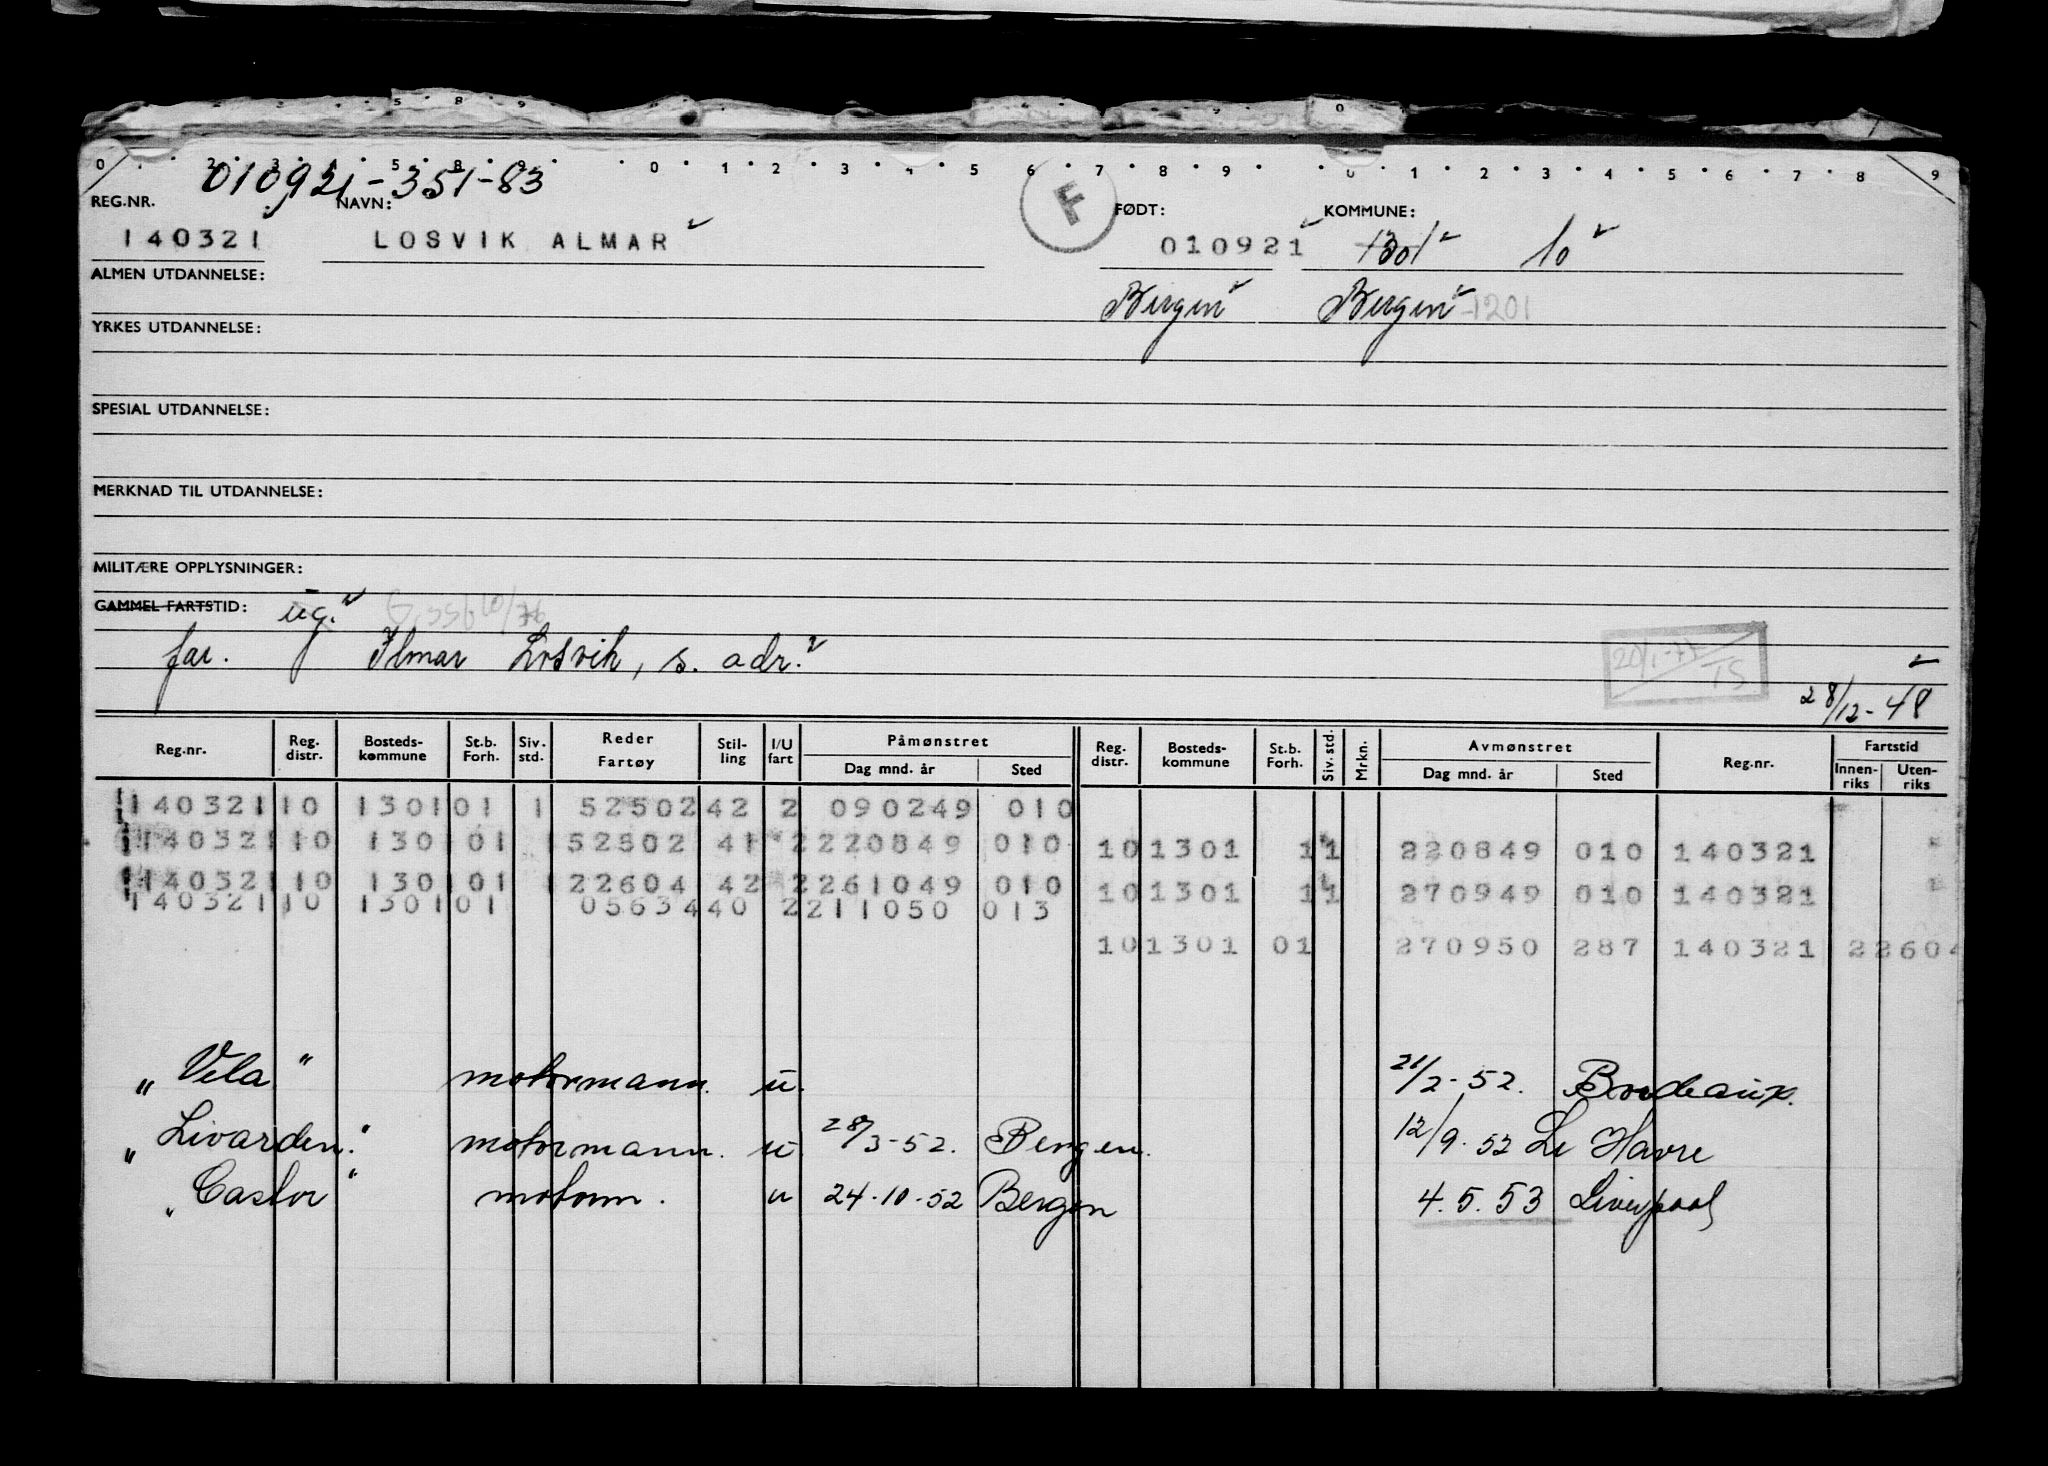 0 2 3 5 8 9 0 1 2 3 4 5 6 7 8 9 0 1 2 3 4 5 6 7 8 9
010921-351-83
REG.NR. NAVN: F FØDT: KOMMUNE:
140321 LOSVIK ALMAR 010921 1301 10
ALMEN UTDANNELSE: Bergen Bergen 1201
YRKES UTDANNELSE:
SPESIAL UTDANNELSE:
MERKNAD TIL UTDANNELSE:
MILITÆRE OPPLYSNINGER:
GAMMEL FARTSTID: ug.
far. Ilmar Losvik, s. adr.
28/12-48
Reg.nr. Reg. distr. Bosteds-kommune St.b. Forh. Siv. std. Reder Fartøy Stil-ling I/U fart Påmønstret Dag mnd. år Sted Reg. distr. Bosteds-kommune St.b. Forh. Siv. std. Mrkn. Avmønstret Dag mnd. år Sted Reg.nr. Fartstid Innen-riks Uten-riks
140321 10 1301 01 1 52502 42 2 090249 010
140321 10 1301 01 1 52502 41 2 220849 010 10 1301 1 1 220849 010 140321
140321 10 1301 01 1 22604 42 2 261049 010 10 1301 1 1 270949 010 140321
140321 10 1301 01 05634 40 2 211050 013
10 1301 01 270950 287 140321 22604
„Vela" motormann. u. 21/2-52. Bordeaux.
„Livarden." motormann. u 28/3-52. Bergen. 12/9-52 Le Havre
„Castor" motorm. u 24-10-52 Bergen 4.5.53 Liverpool